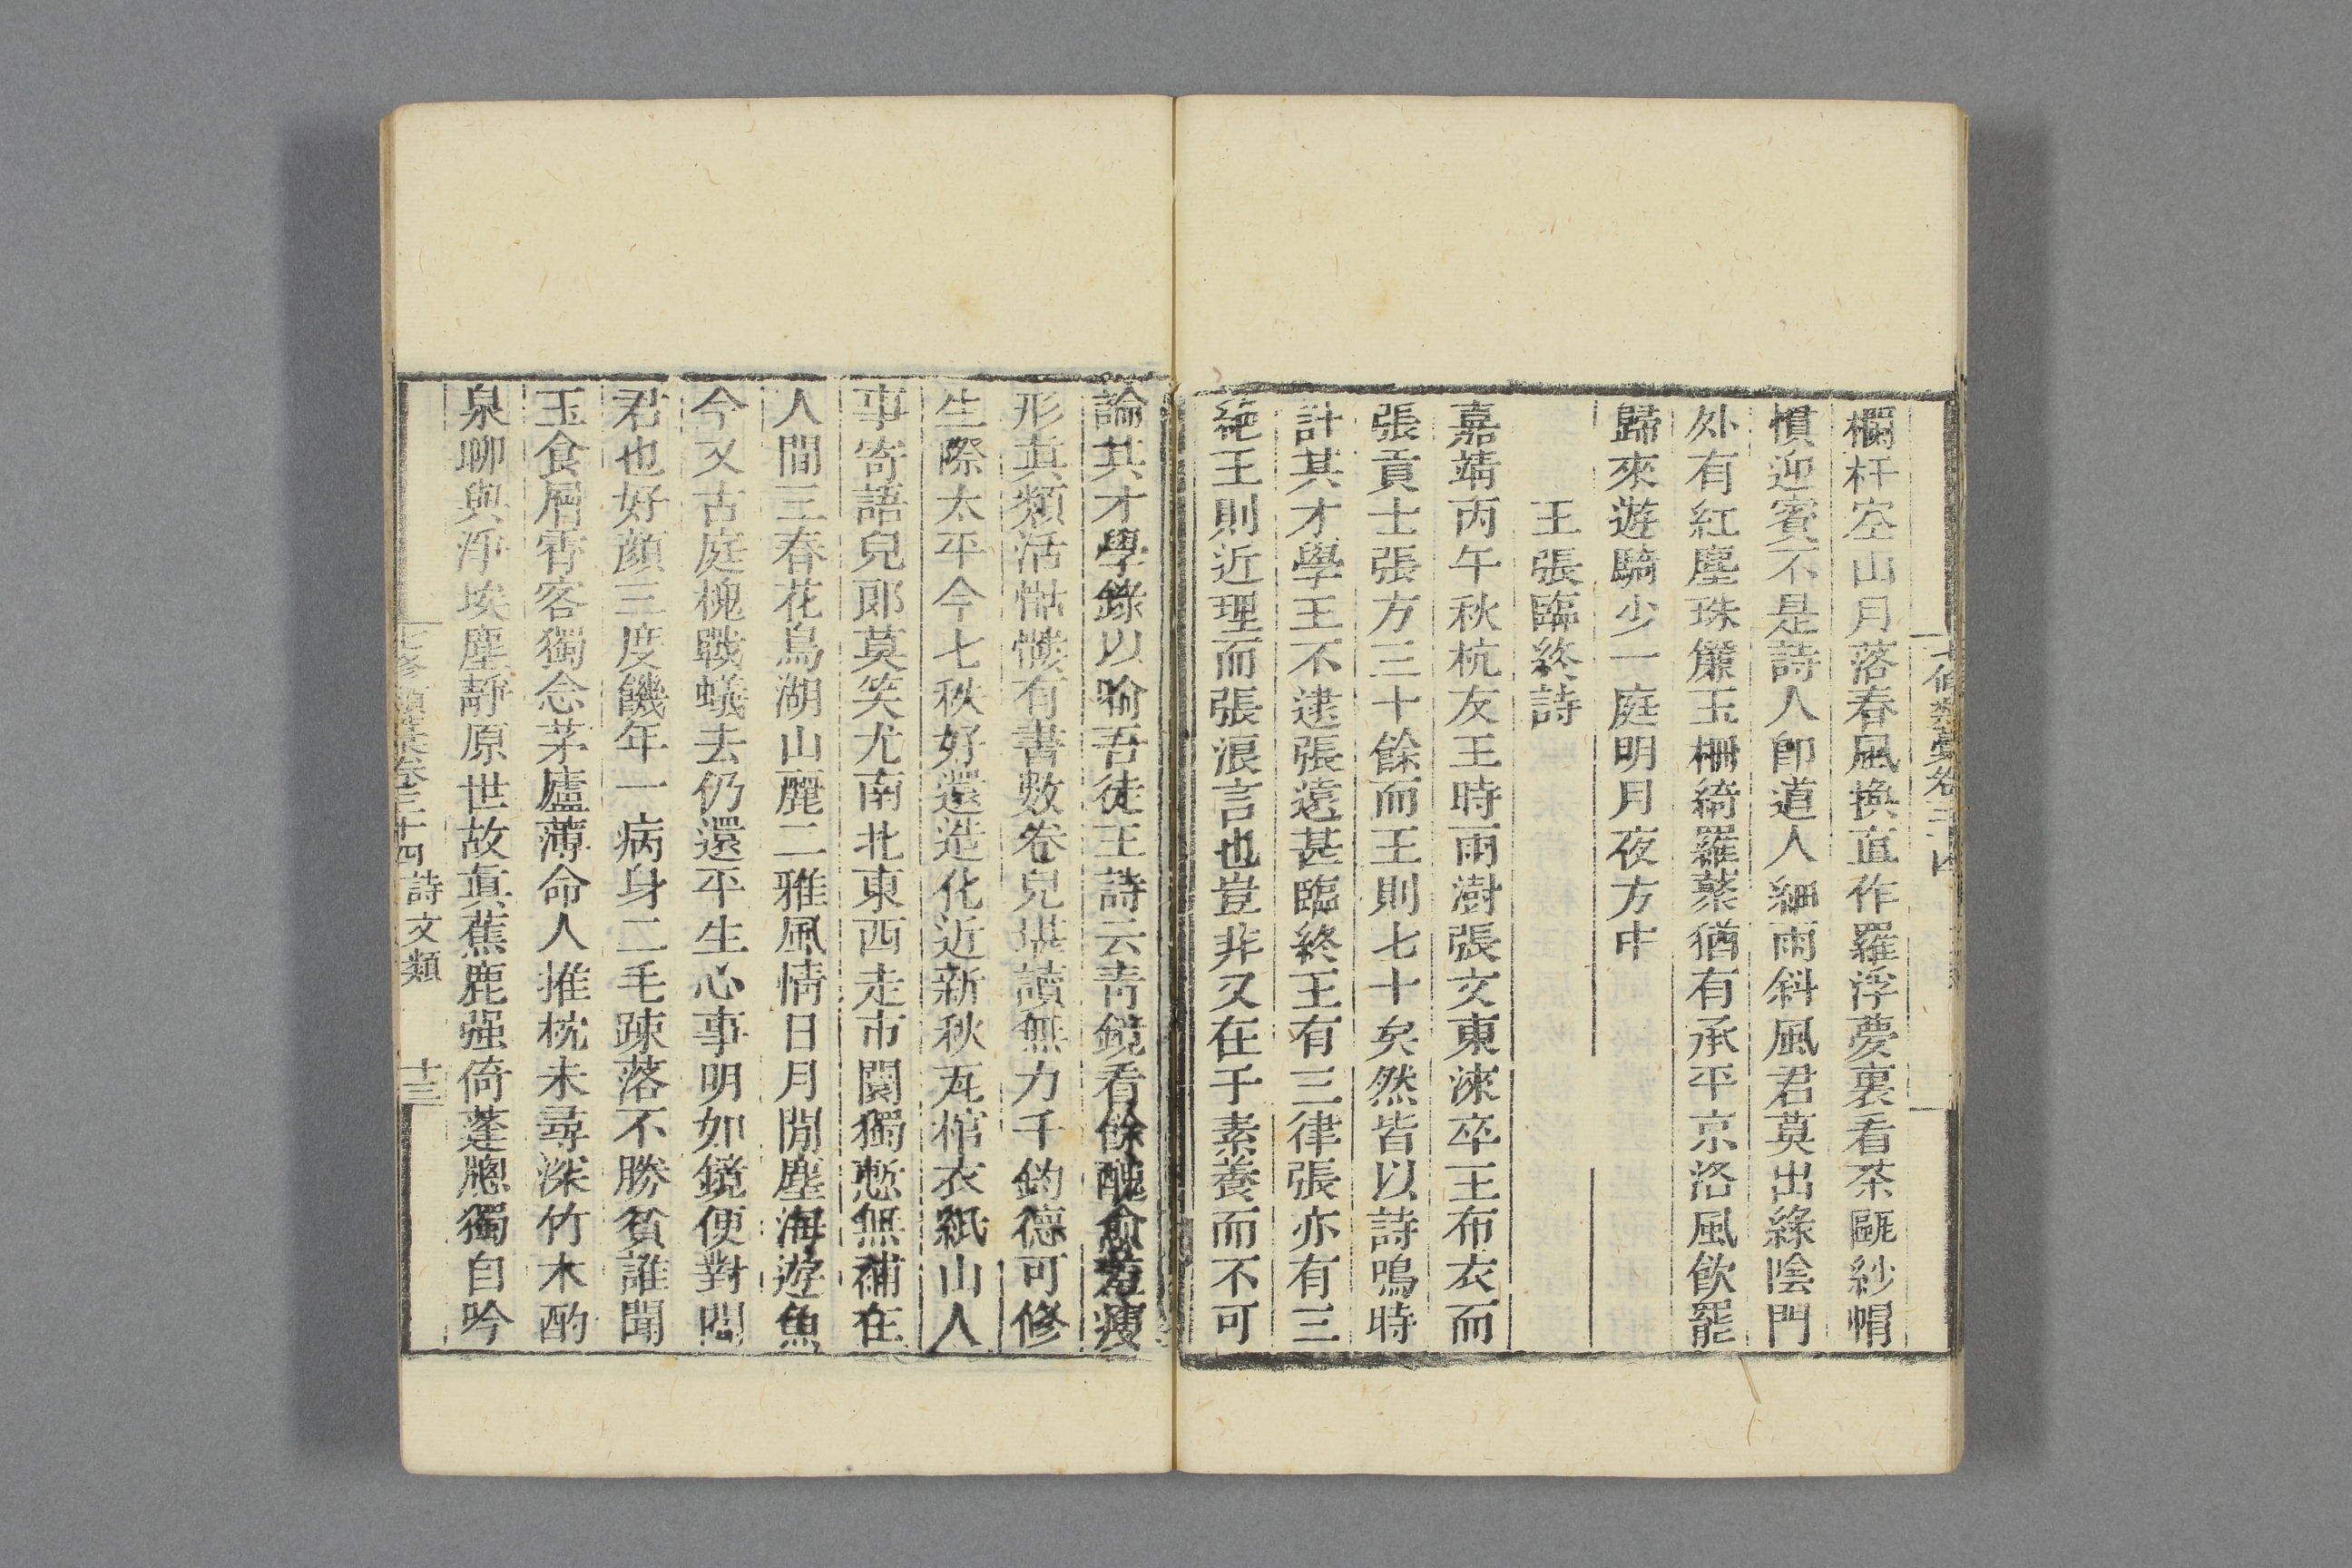 七修類藁卷三十四
欄杆空山月落春風換直作羅浮夢裏看茶甌紗帽
慣迎賓不是詩人卽道人細雨斜風君莫出綠陰門
外有紅塵珠簾玉柵綺羅蘂猶有承平京洛風飲罷
歸來遊騎少一庭明月夜方中
王張臨終詩
嘉靖丙午秋杭友王時雨澍張文東淶卒王布衣而
張貢士張方三十餘而王則七十矣然皆以詩鳴時
計其才學王不逮張遠甚臨終王有三律張亦有三
絶王則近理而張浪言也豈非又在于素養而不可
論其才學錄以喻吾徒王詩云靑鏡看餘醜愈羞瘦
形眞類活骷髏有書數卷兒堪讀無力千鈞德可修
生際太平今七秩好還造化近新秋瓦棺衣紙山人
事寄語兒郞莫笑尤南北東西走市闤獨慙無補在
人間三春花鳥湖山麗二雅風情日月閒塵海遊魚
今又古庭槐戰蟻去仍還平生心事明如鏡便對閻
君也好顔三度饑年一病身二毛疎落不勝貧誰聞
玉食層霄客獨念茅廬薄命人推枕未尋深竹木酌
泉聊與淨埃塵靜原世故眞蕉鹿强倚蓬牕獨自吟
七修類藁卷三十四 詩文類 十三